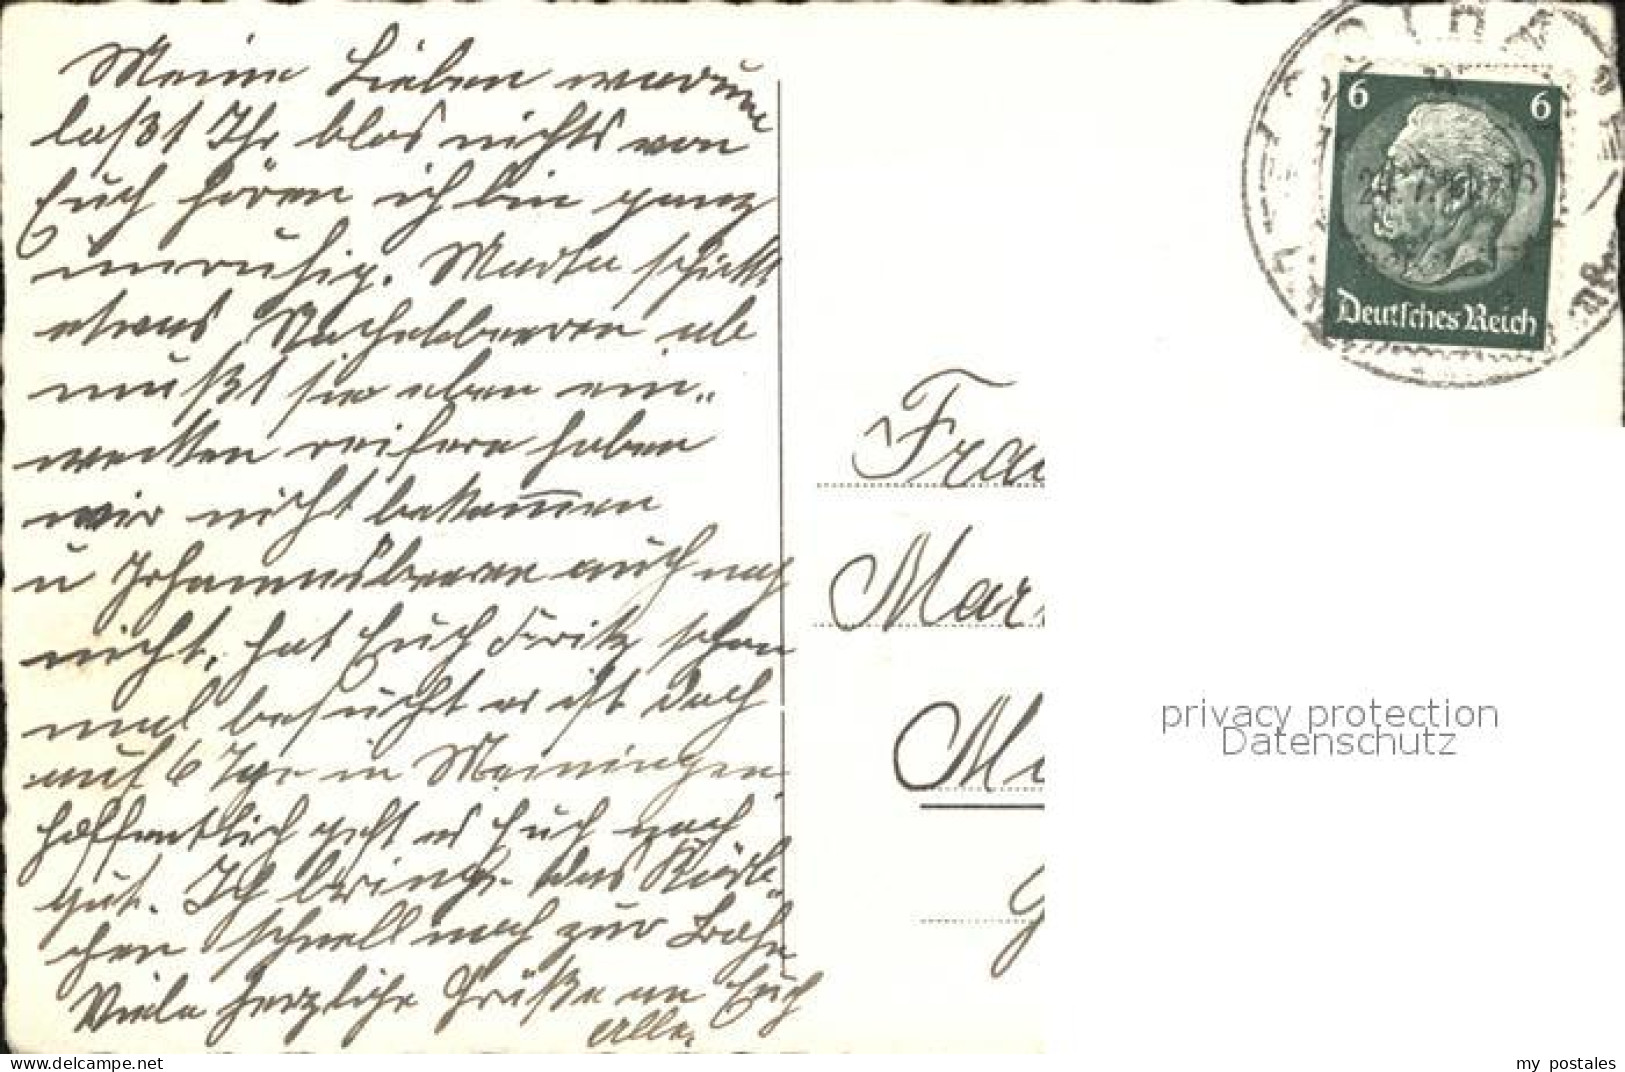 Meine Lieben warum
laßt Ihr blos nichts von
Euch hören ich bin ganz
unruhig. Martha schickt
etwas Stachelbeeren ab
mußt sie eben ein-
wecken reifere haben
wir nicht bekommen
u Johannisbeeren auch noch
nicht, hat Euch Fritz schon
mal besucht er ist doch
auf 6 Tge in Meiningen.
hoffentlich geht es Euch noch
gut. Ich bringe das Kärt-
chen schnell noch zur Bahn
Viele herzliche Grüße an Euch
Alle.
6 6
Deutsches Reich
Frau
Mar
M
privacy protection
Datenschutz
delcampe.net
my_postales